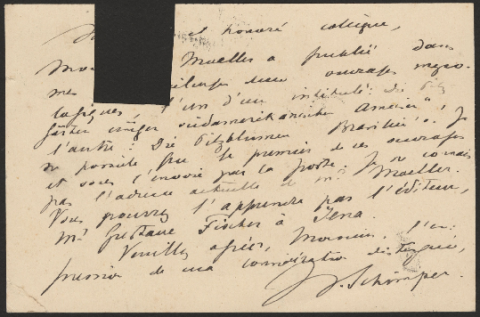 et honoré collègue,
Moeller a publié dans
mes deux ouvrages myco-
logiques l'un d'eux intitulé: Die Pilz
gärten einiger südamerikanischer Ameisen",
l'autre: Die Pilzblumen Brasiliens. Je
ne possède que le premier de ces ouvrages
et vous l'envoie par la poste. Je ne connais
pas l'adresse actuelle de Mr Moeller.
Vous pouvez l'apprendre par l'éditeur,
Mr Gustave Fischer à Iéna.
Veuillez agréer, Monsieur, l'ex-
pression de ma considération distinguée,
Schimper.